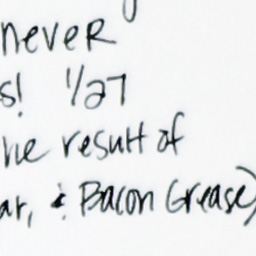 never
s! 1/27
he result of
ar, & Bacon Grease)